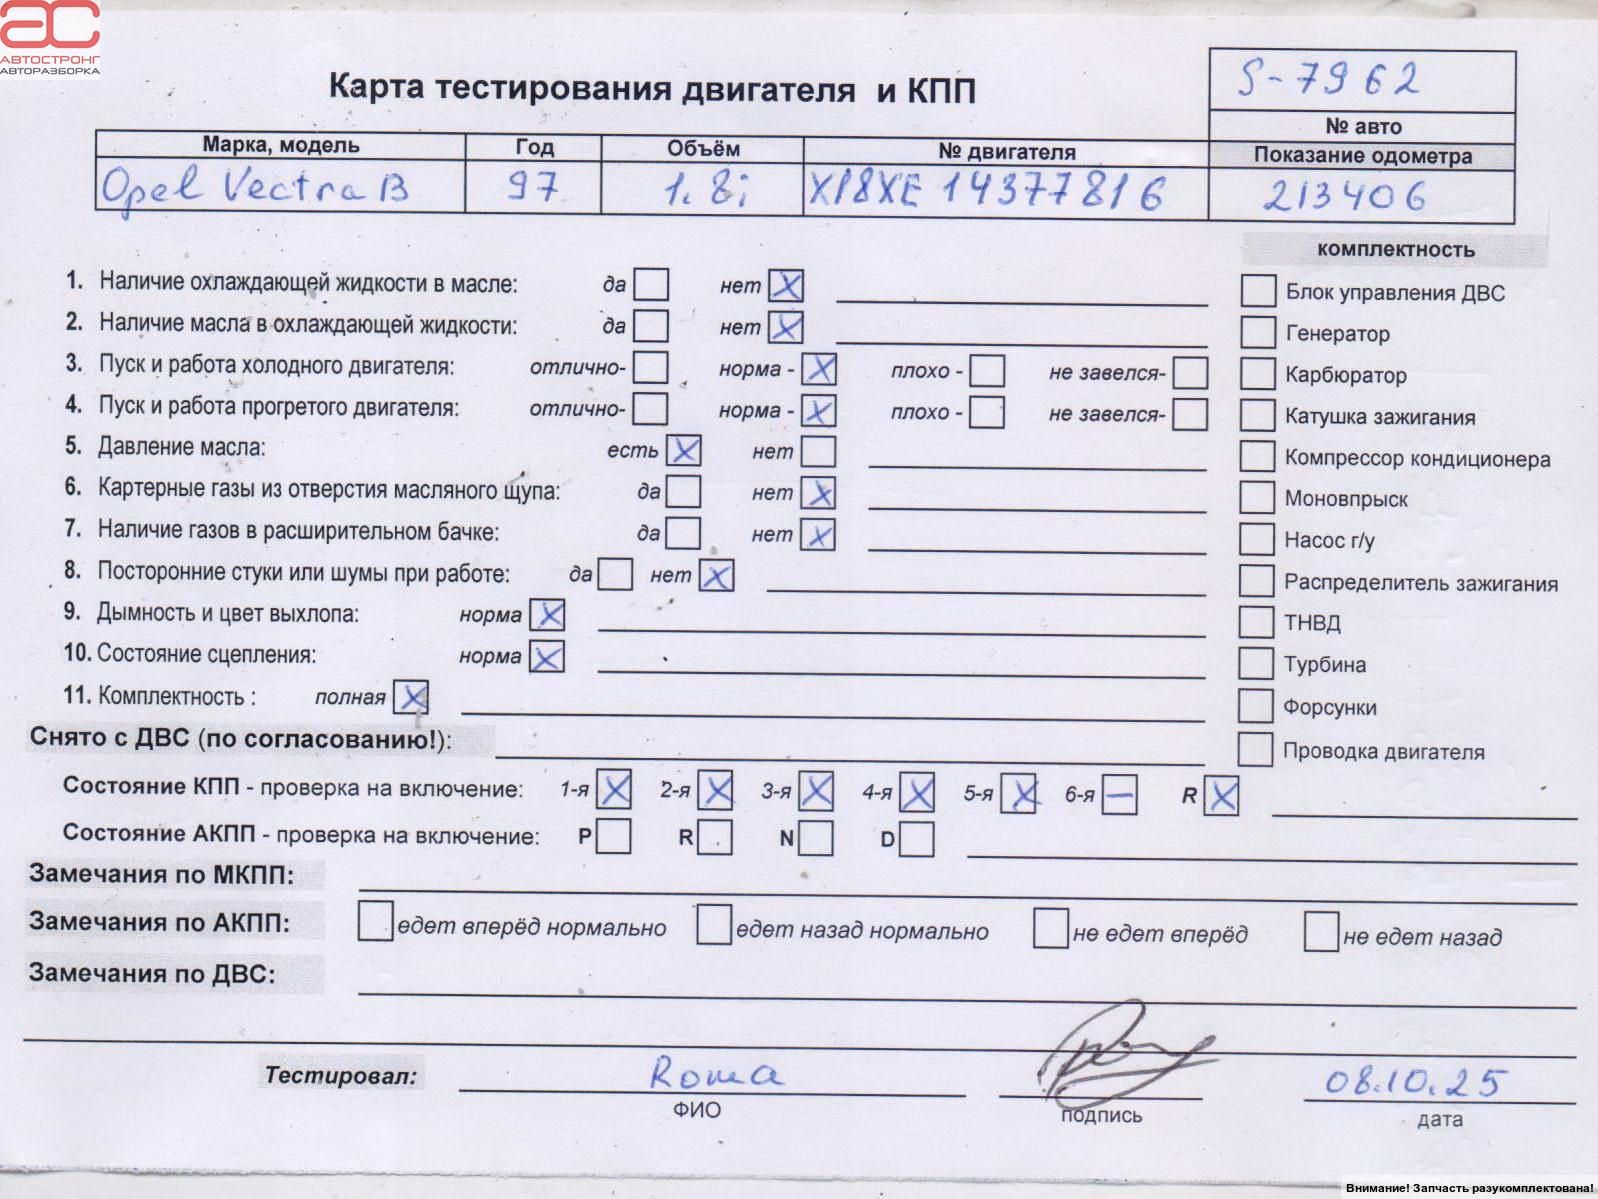 АС
АВТОСТРОНГ
АВТОРАЗБОРКА
Карта тестирования двигателя и КПП
S-7962
№ авто
Марка, модель Год Объём № двигателя Показание одометра
Opel Vectra B 97 1.8i X18XE 14377816 213406
комплектность
1. Наличие охлаждающей жидкости в масле: да нет X
2. Наличие масла в охлаждающей жидкости: да нет X
3. Пуск и работа холодного двигателя: отлично- норма - X плохо - не завелся-
4. Пуск и работа прогретого двигателя: отлично- норма - X плохо - не завелся-
5. Давление масла: есть X нет
6. Картерные газы из отверстия масляного щупа: да нет X
7. Наличие газов в расширительном бачке: да нет X
8. Посторонние стуки или шумы при работе: да нет X
9. Дымность и цвет выхлопа: норма X
10. Состояние сцепления: норма X
11. Комплектность : полная X
Блок управления ДВС
Генератор
Карбюратор
Катушка зажигания
Компрессор кондиционера
Моновпрыск
Насос г/у
Распределитель зажигания
ТНВД
Турбина
Форсунки
Проводка двигателя
Снято с ДВС (по согласованию!):
Состояние КПП - проверка на включение: 1-я X 2-я X 3-я X 4-я X 5-я X 6-я — R X
Состояние АКПП - проверка на включение: P R N D
Замечания по МКПП:
Замечания по АКПП: едет вперёд нормально едет назад нормально не едет вперёд не едет назад
Замечания по ДВС:
Тестировал: Roma 08.10.25
ФИО подпись дата
Внимание! Запчасть разукомплектована!